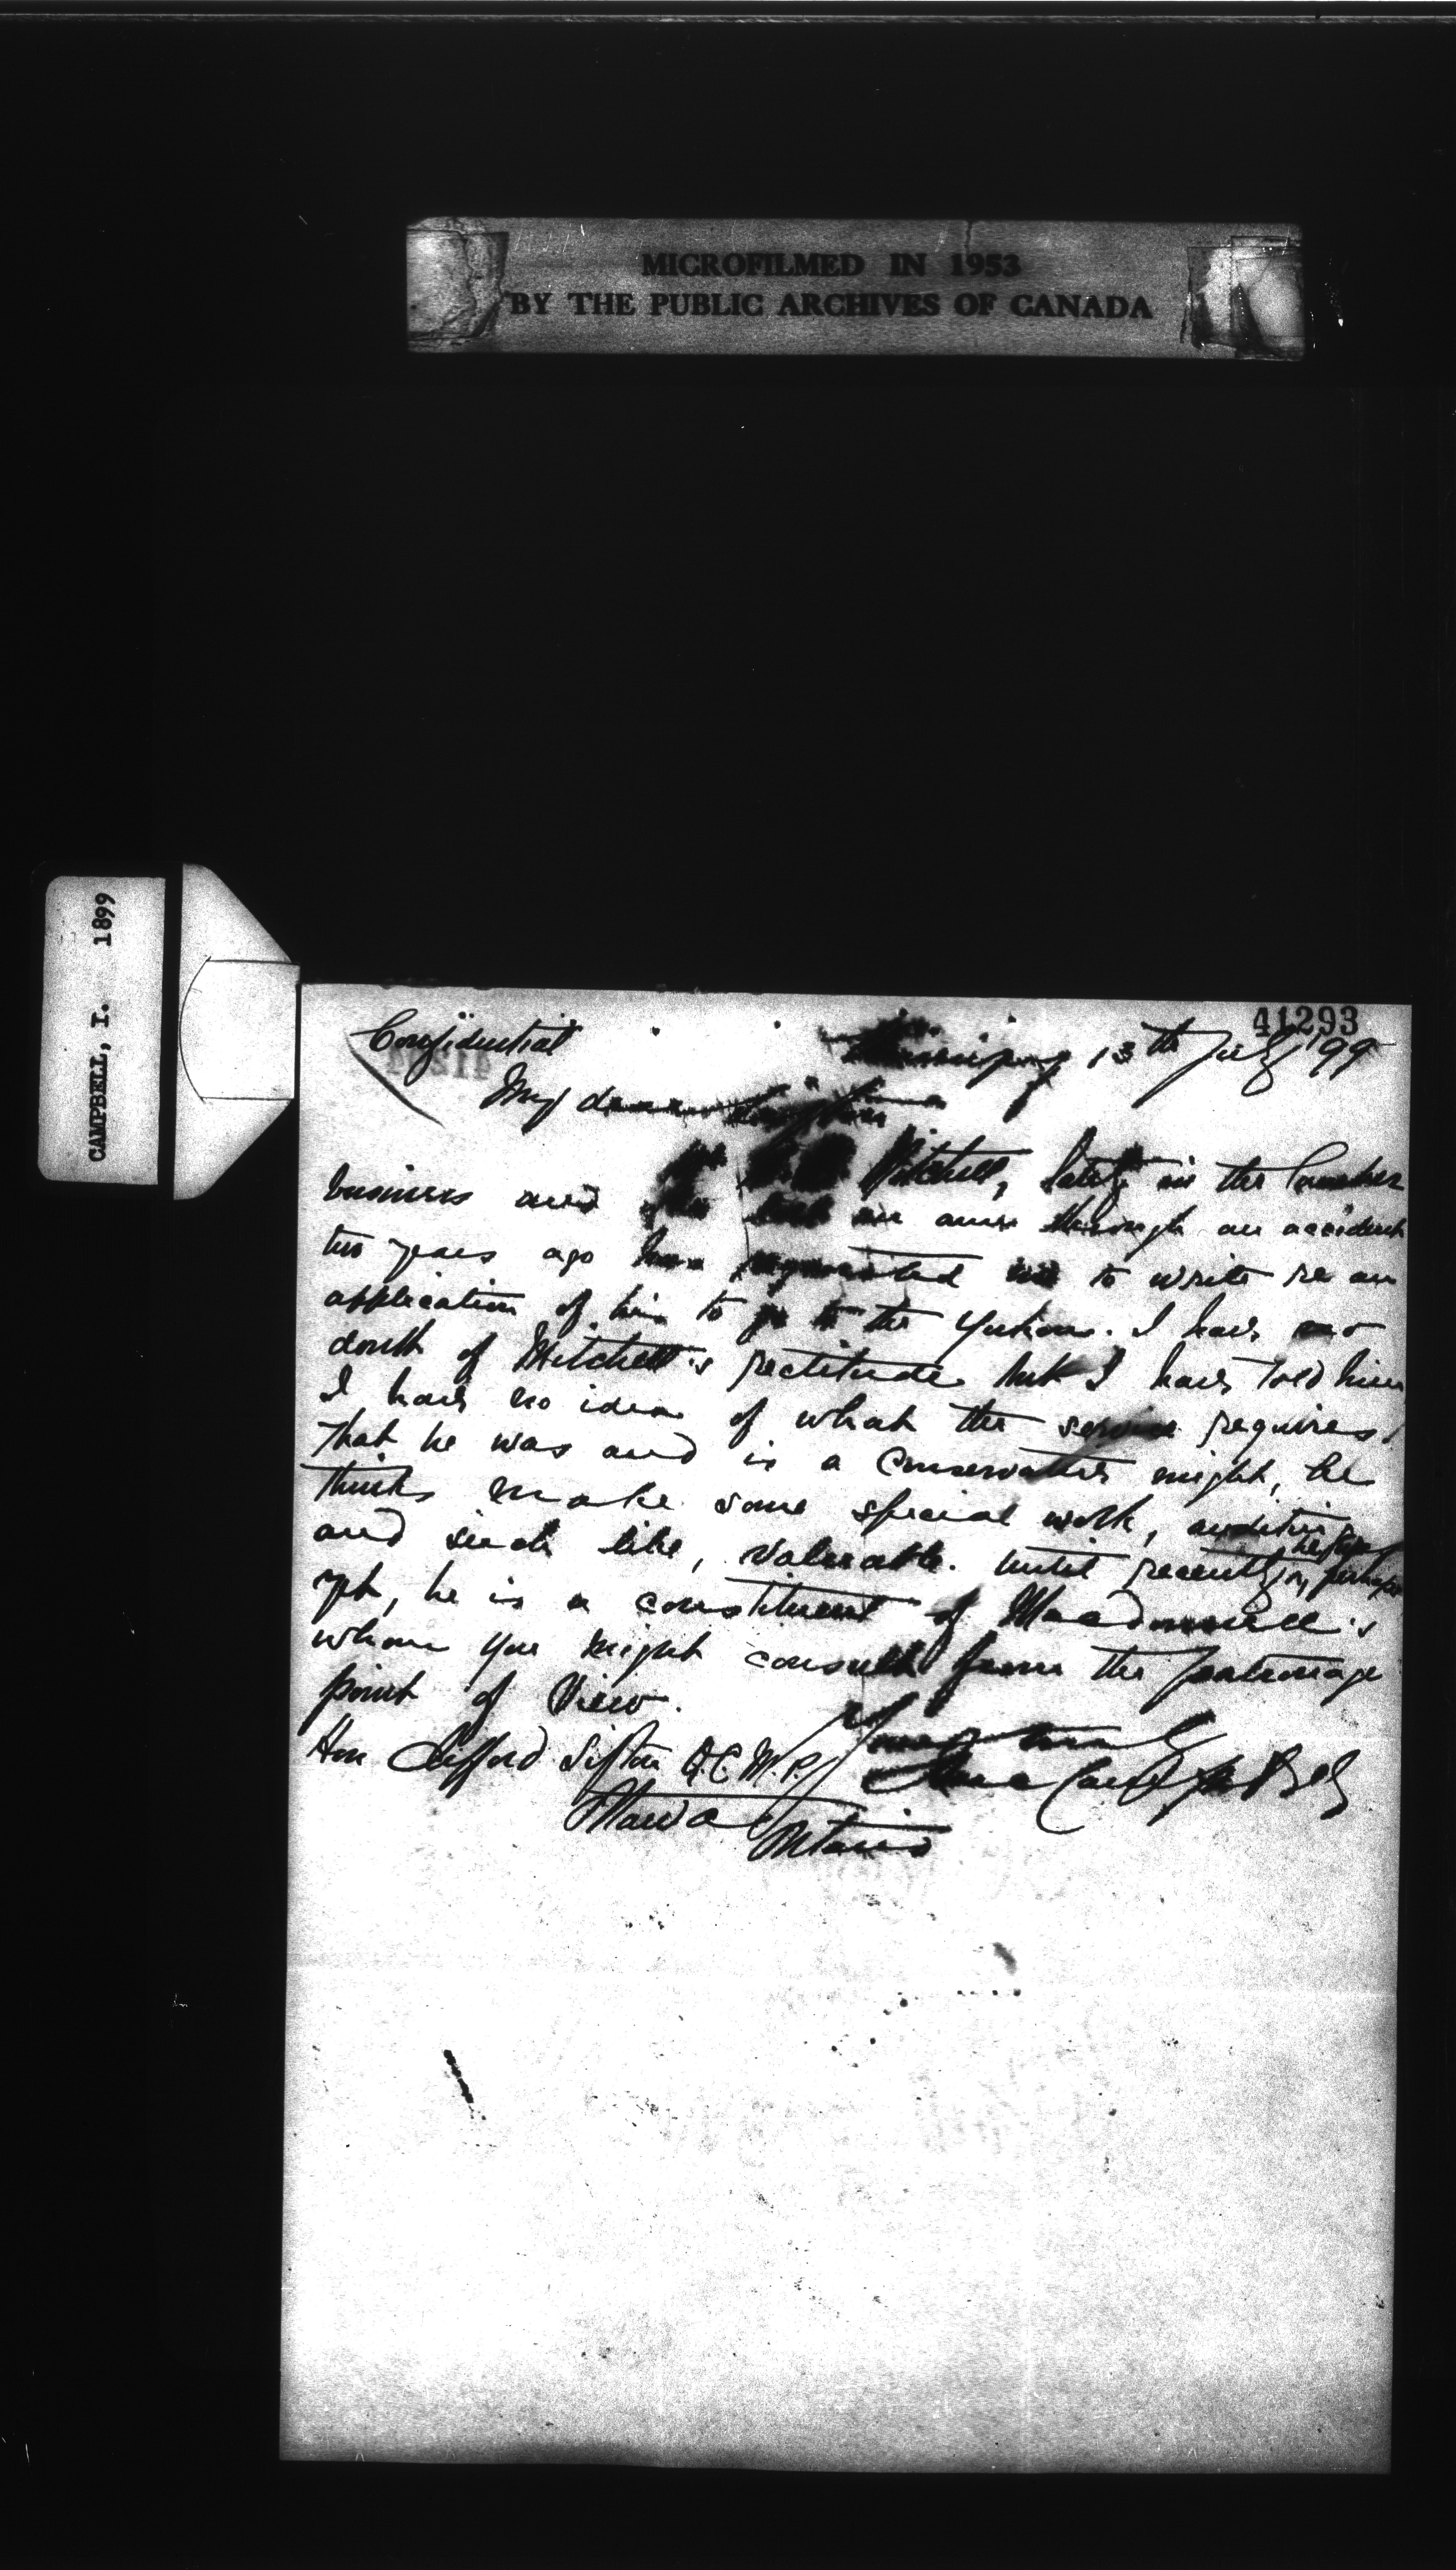 MICROFILMED IN 1953
BY THE PUBLIC ARCHIVES OF CANADA
CAMPBELL, I. 1899
41293
Confidential
Winnipeg 13th July '99
My dear
Mitchell, lately in the lumber
business and who lost an arm through an accident
two years ago has requested me to write re an
application of his to go to the Yukon. I have no
doubt of Mitchell's rectitude but I have told him
I have no idea of what the service requires.
That he was and is a Conservative might, he
thinks make some special work, auditing
and such like, valuable. Until recently, perhaps
yet, he is a constituent of Macdonnell's
whom you might consult from the patronage
point of view.
Yours truly
Hon Clifford Sifton Q.C. M.P. Isaac Campbell
Ottawa
Ontario